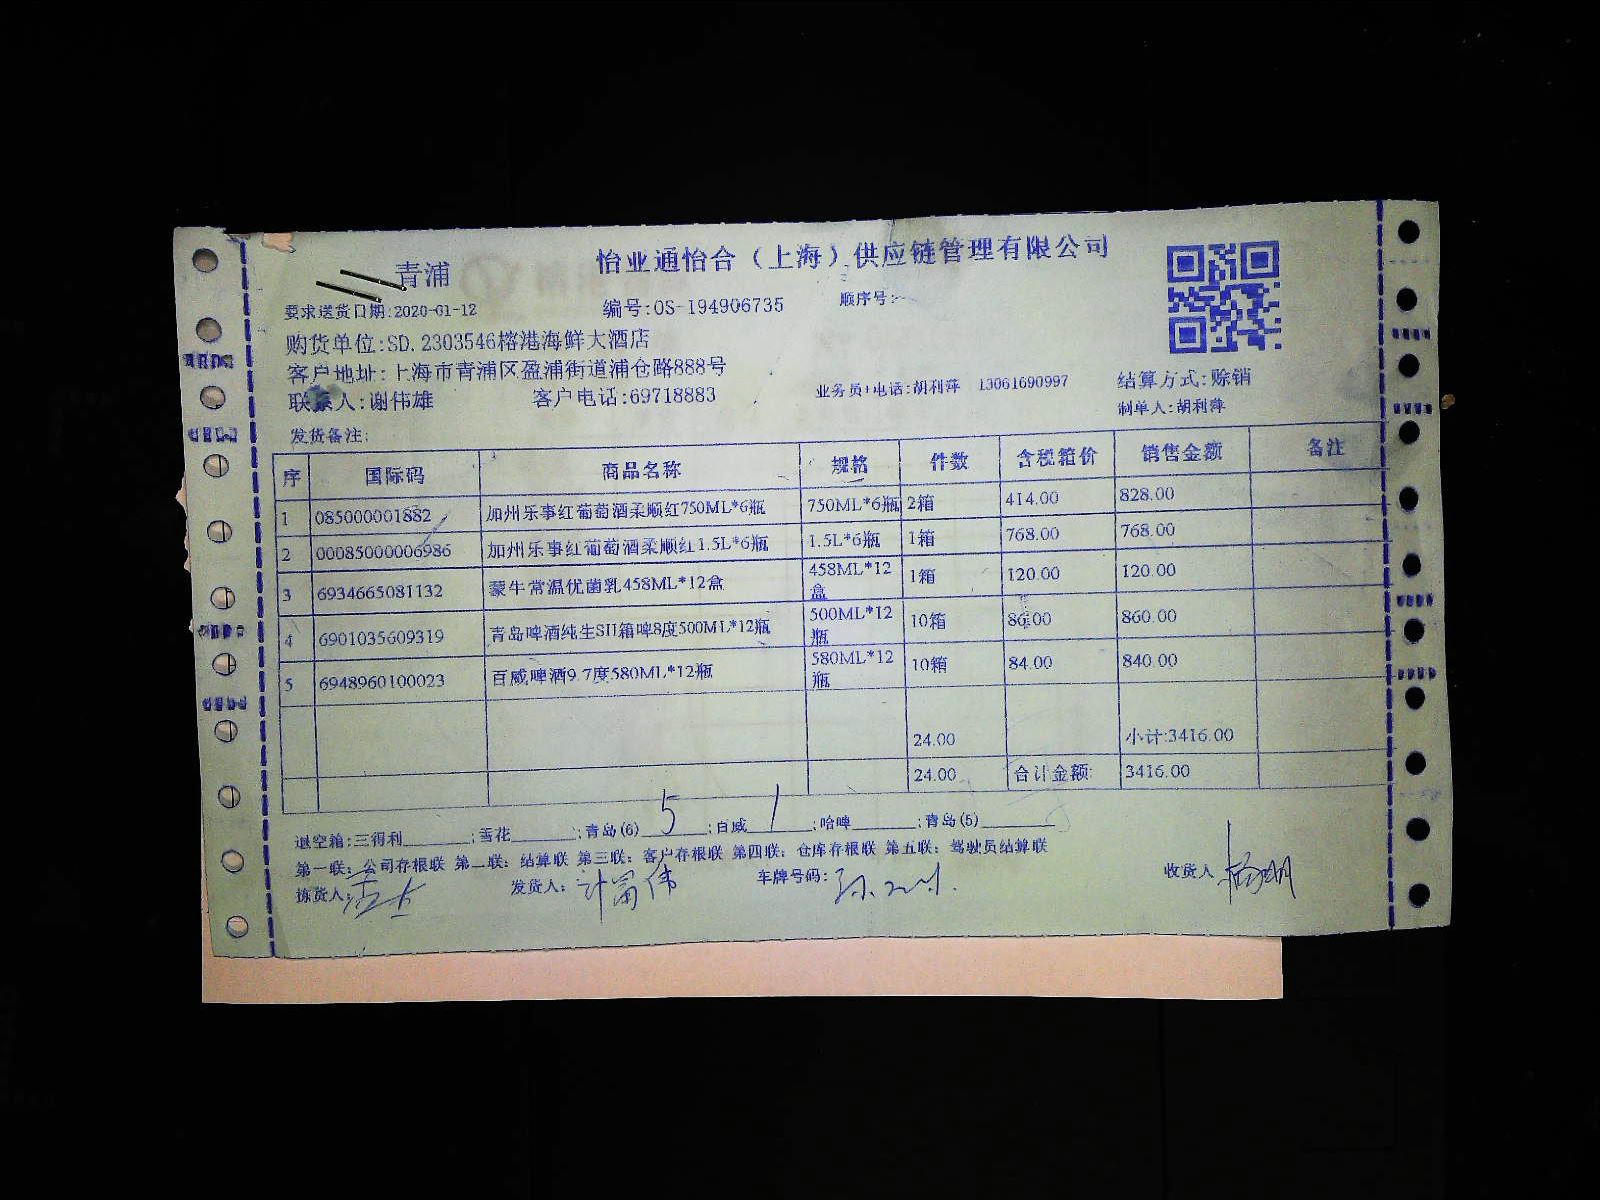 青浦 怡亚通怡合（上海）供应链管理有限公司
要求送货日期:2020-01-12 编号:OS-194906735 顺序号:
购货单位:SD.2303546榕港海鲜大酒店
客户地址:上海市青浦区盈浦街道浦仓路888号
联系人:谢伟雄 客户电话:69718883 业务员+电话:胡利萍 13061690997 结算方式:赊销
制单人:胡利萍
发货备注:
序 国际码 商品名称 规格 件数 含税箱价 销售金额 备注
1 085000001882 加州乐事红葡萄酒柔顺红750ML*6瓶 750ML*6瓶 2箱 414.00 828.00
2 00085000006986 加州乐事红葡萄酒柔顺红1.5L*6瓶 1.5L*6瓶 1箱 768.00 768.00
3 6934665081132 蒙牛常温优菌乳458ML*12盒 458ML*12盒 1箱 120.00 120.00
4 6901035609319 青岛啤酒纯生SH箱啤8度500ML*12瓶 500ML*12瓶 10箱 86.00 860.00
5 6948960100023 百威啤酒9.7度580ML*12瓶 580ML*12瓶 10箱 84.00 840.00
24.00 小计:3416.00
24.00 合计金额: 3416.00
退空箱:三得利______;雪花______;青岛(6) 5 ;百威 1 ;哈啤______;青岛(5)______
第一联：公司存根联 第二联：结算联 第三联：客户存根联 第四联：仓库存根联 第五联：驾驶员结算联
拣货人: 发货人: 计富伟 车牌号码: 收货人